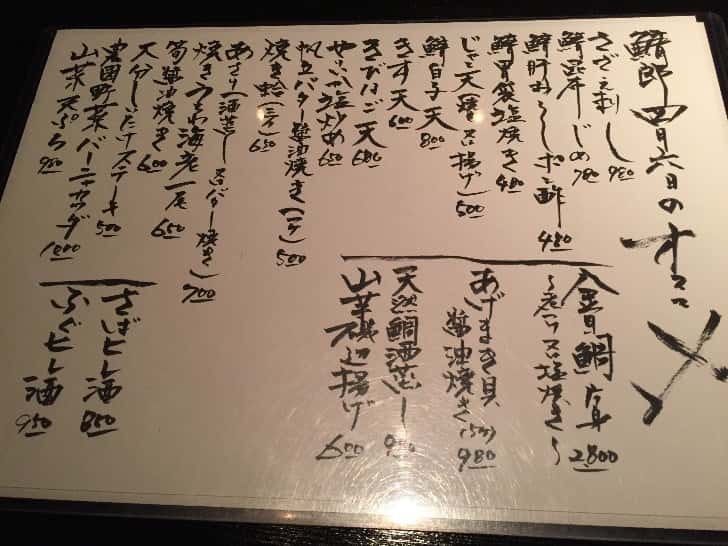 鯖郎 四月六日のオススメ
さざえ刺し 980
鮮昆布じめ 780
鮮肝ポン酢 480
鮮胃袋塩焼き 480
じゃこ天(揚げ) 500
鮮白子天 800
きす天 600
きびなご天 680
やりいか塩炒め 650
帆立バター醤油焼き(一ケ) 500
焼き蛤(二ケ) 650
あさり(酒蒸し or バター焼き) 700
焼きうちわ海老一尾 650
筍醤油焼き 600
大分しいたけステーキ 500
農園野菜バーニャカウダ 1000
山菜天ぷら 980
金目鯛片身 2,800
塩焼き
あげまき貝
醤油焼き 980
天然鯛酒蒸し 950
山芋磯辺揚げ 600
さばヒレ酒 850
ふぐヒレ酒 950